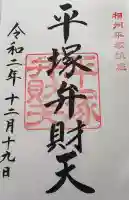 相州平塚鎮座
平塚弁財天
令和二年十二月十九日